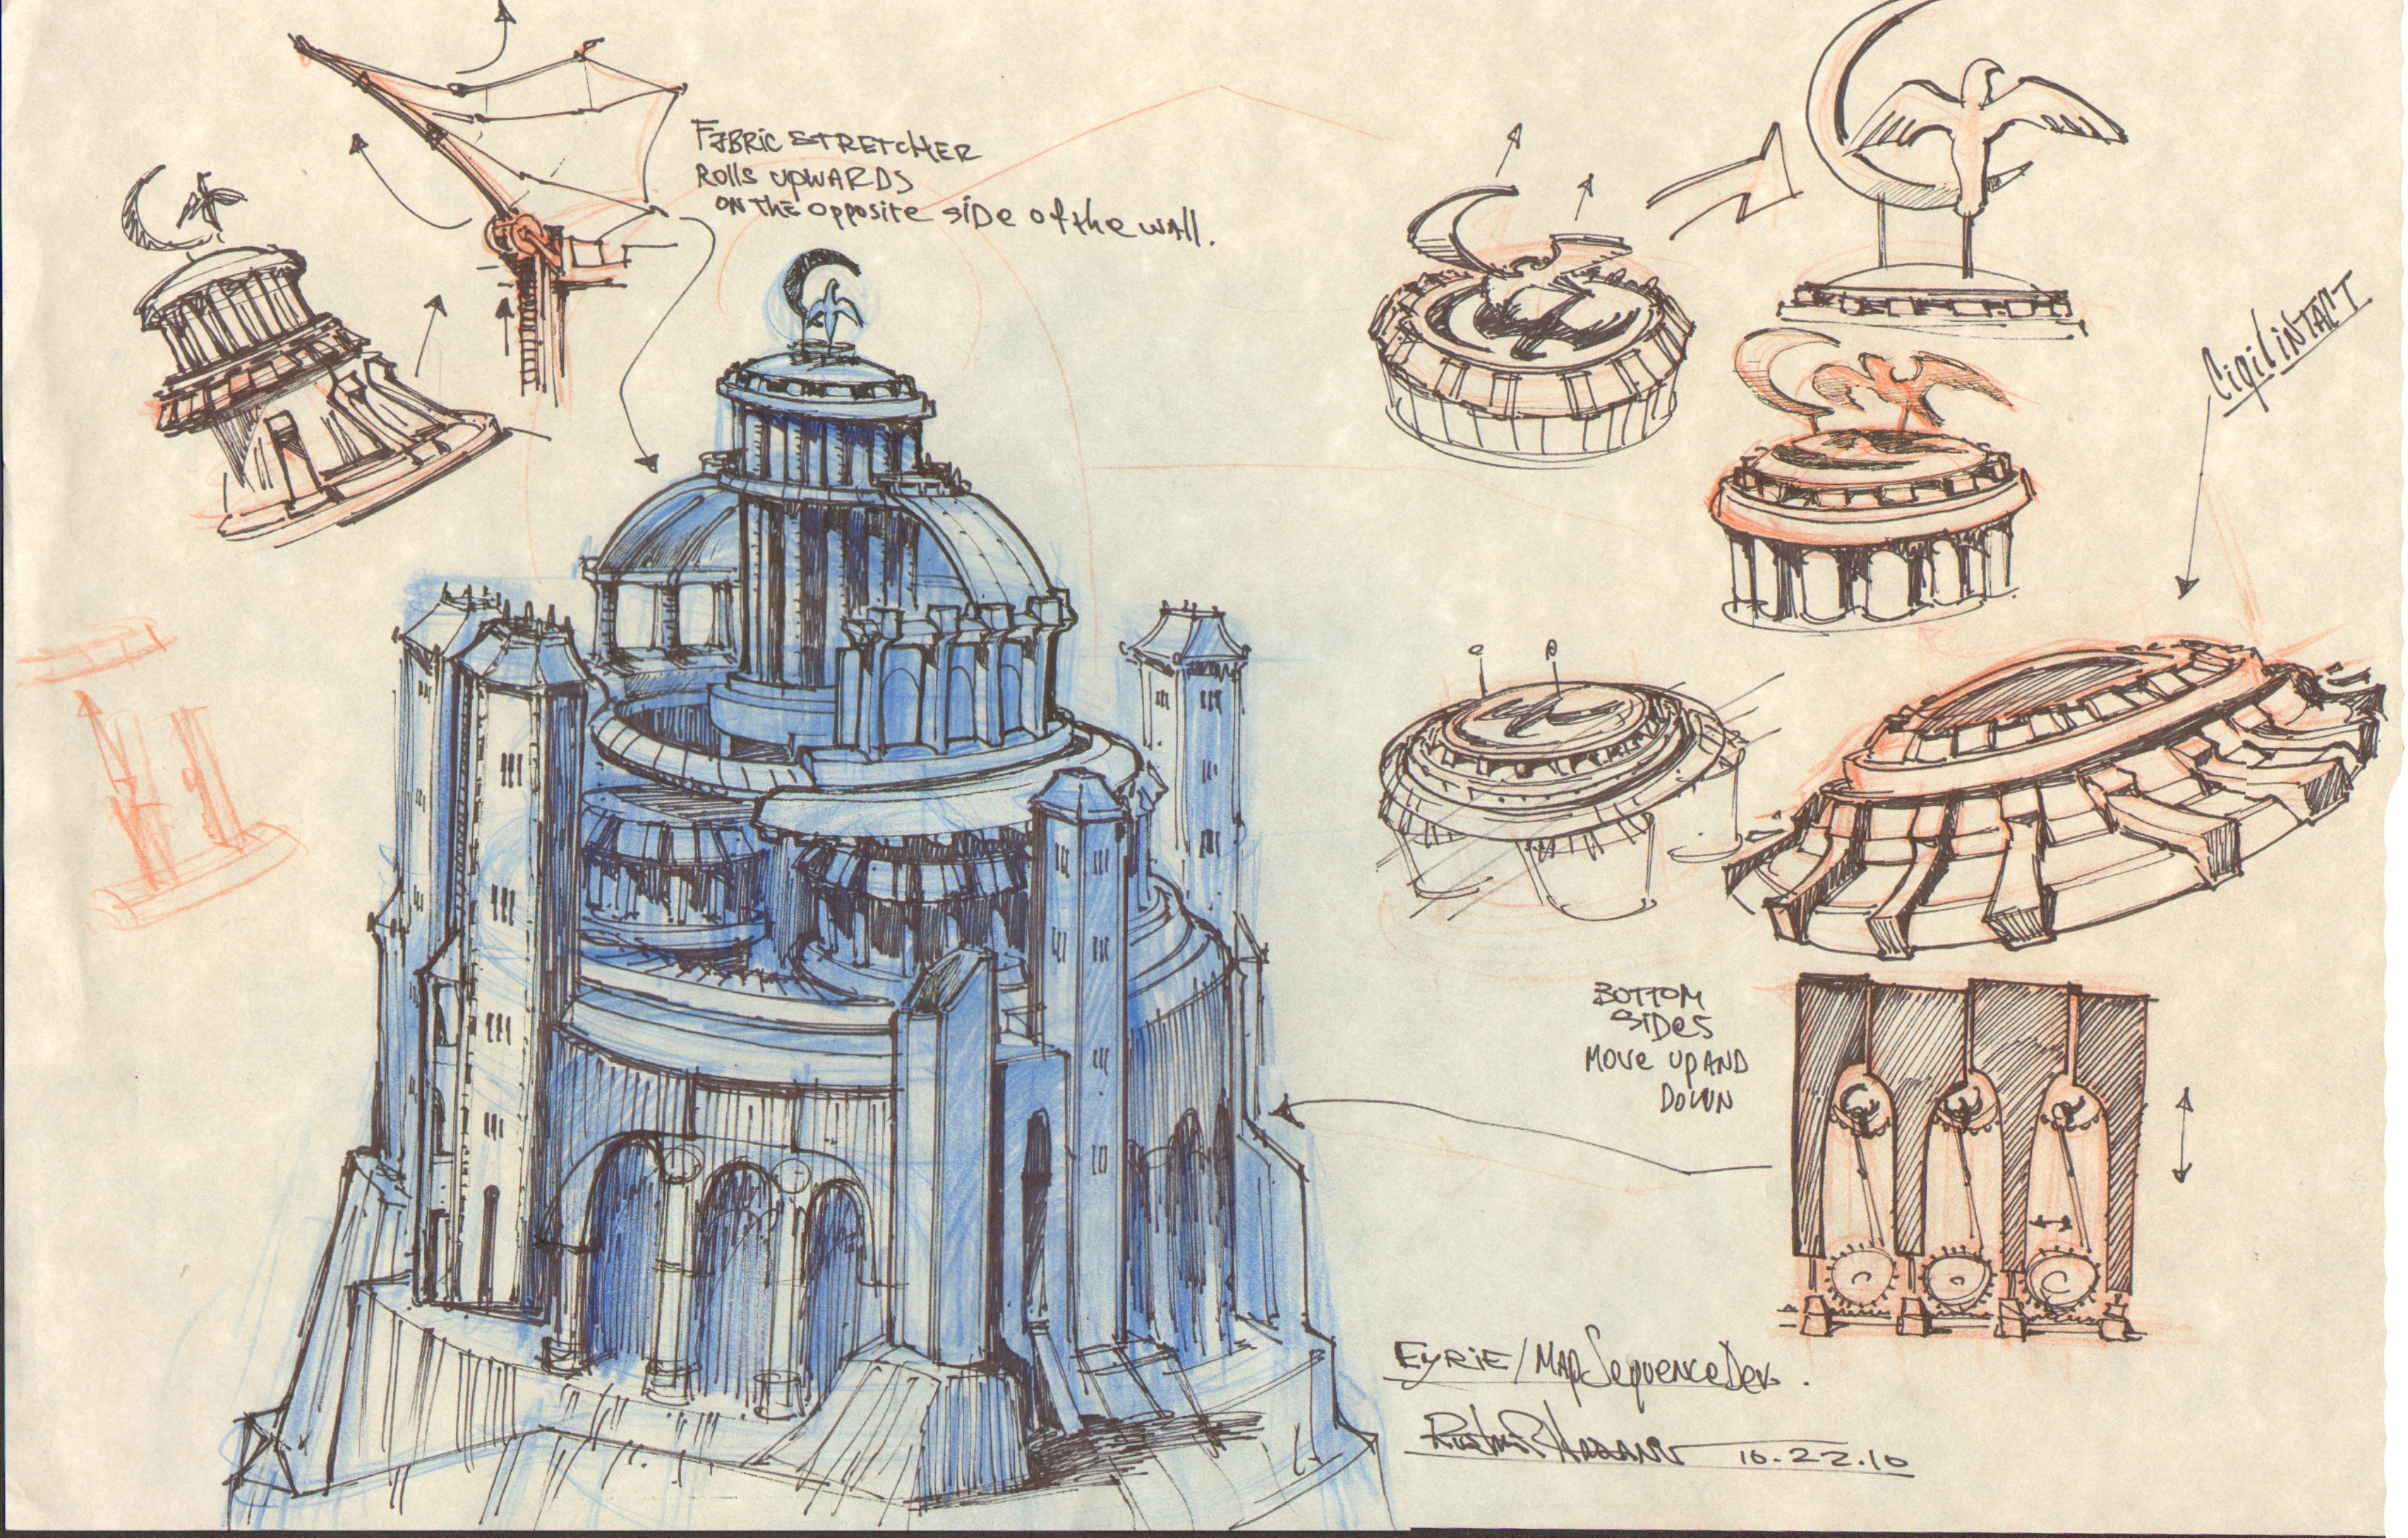 FABRIC STRETCHER
ROLLS UPWARDS
ON THE OPPOSITE SIDE OF THE WALL.
CIGIL INTACT
BOTTOM
SIDES
MOVE UP AND
DOWN
EYRIE / MAP SEQUENCE DEV.
10.22.10